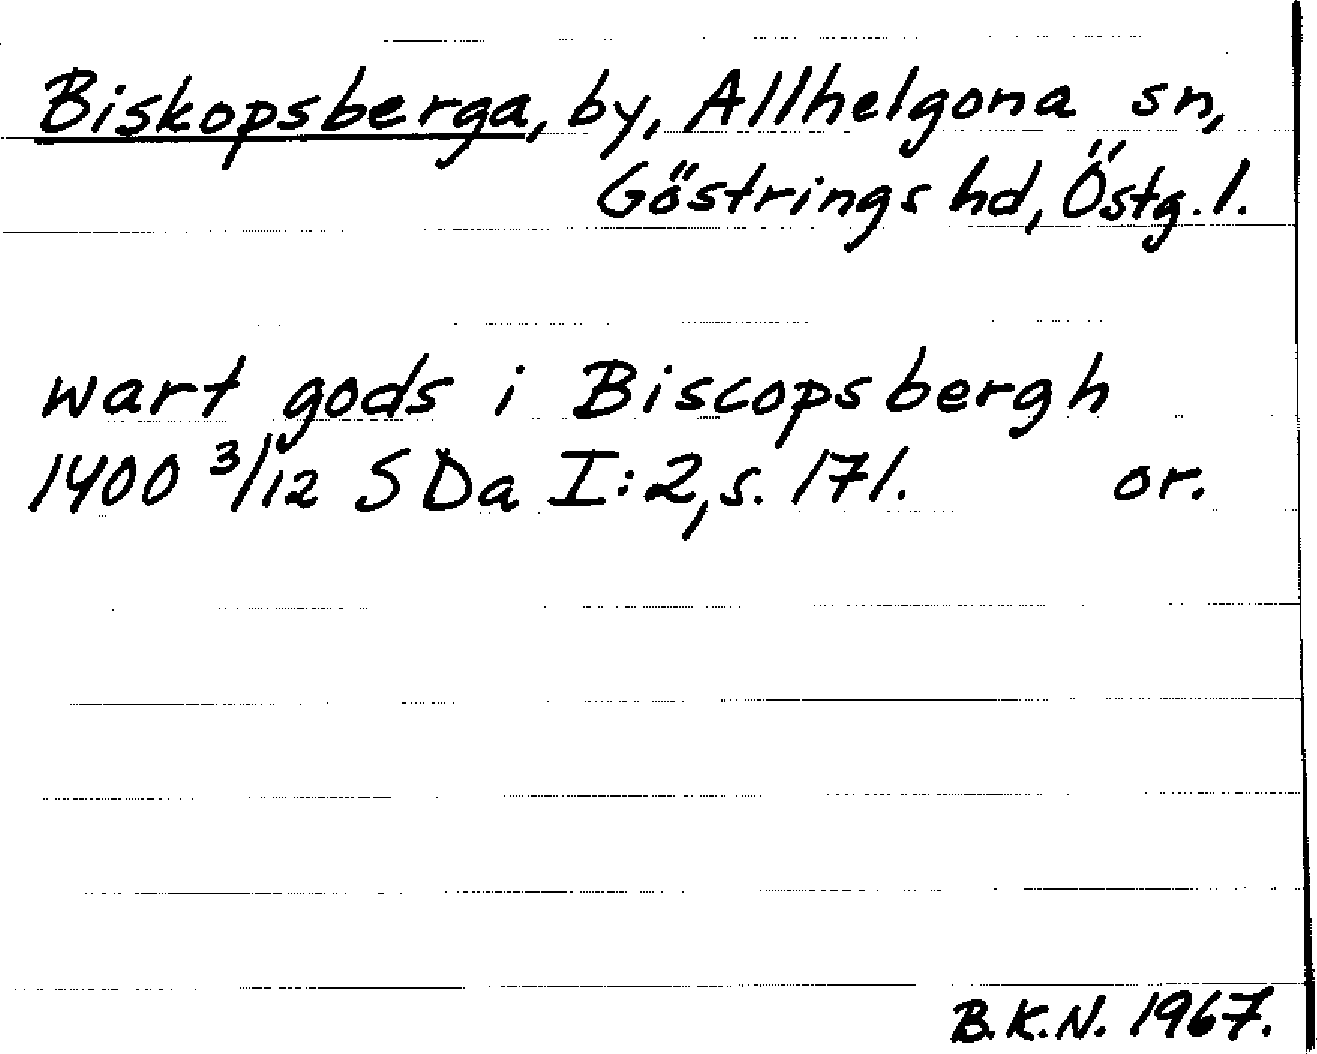 Biskopsberga, by, Allhelgona sn,
Göstrings hd, Östg.l.
wart gods i Biscopsbergh
1400 3/12 SDa I:2,s. 171. or.
B.K.N. 1967.